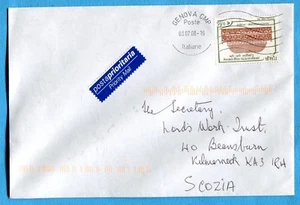 GENOVA CMP
Poste
Italiane
postaprioritaria
Priority Mail
The Secretary,
Lords Work Trust,
40 Beansburn
Kilmarnock KA3 1RH
SCOZIA